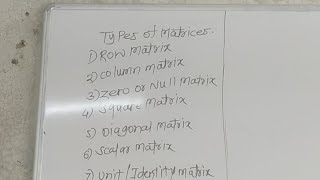 Types of Matrices.
1) Row Matrix
2) Column matrix
3) Zero or Null Matrix
4) Square Matrix
5) Diagonal Matrix
6) Scalar Matrix
7) Unit / Identity Matrix